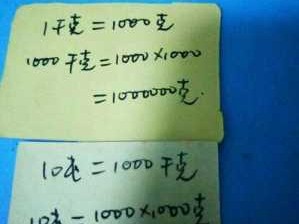 1千克=1000克
1000千克=1000×1000
=1000000克.
10吨=1000千克
10吨=1000×1000克